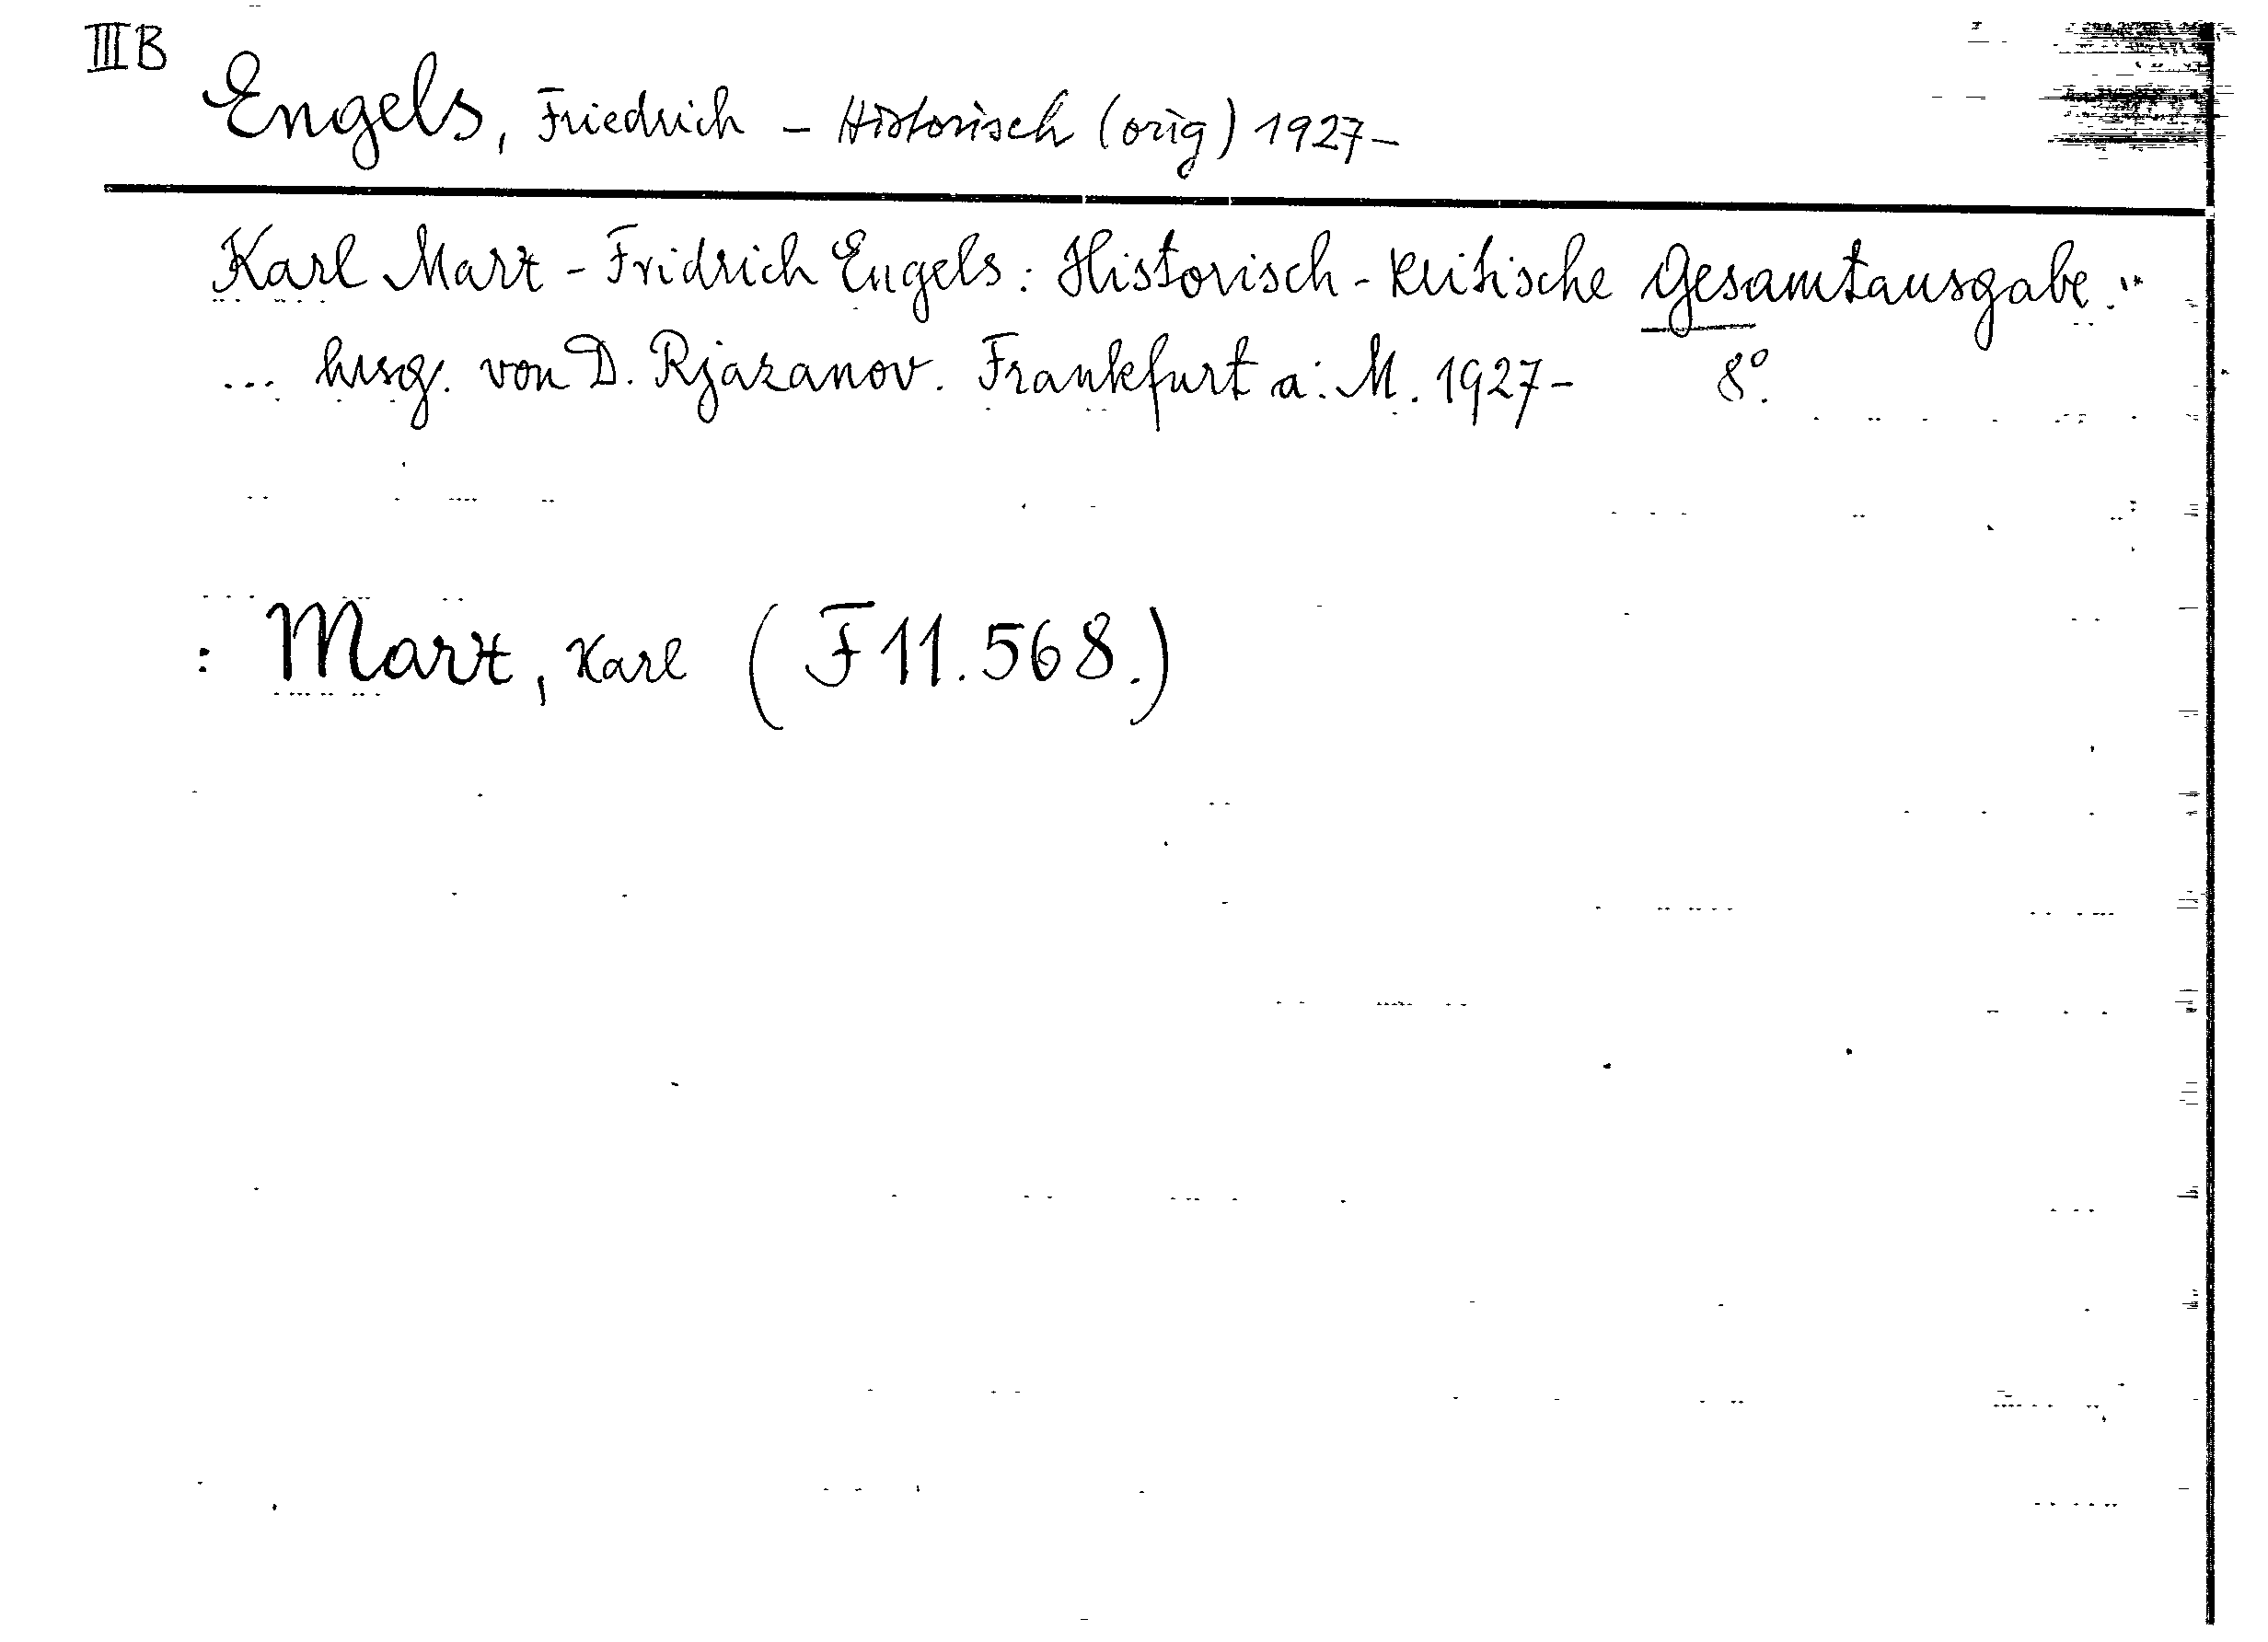 III B
Engels, Friedrich – Historisch (orig) 1927–
Karl Marx - Fridrich Engels: Historisch-kritische Gesamtausgabe...
... hrsg. von D. Rjazanov. Frankfurt a. M. 1927– 8°.
: Marx, Karl (F 11.568.)